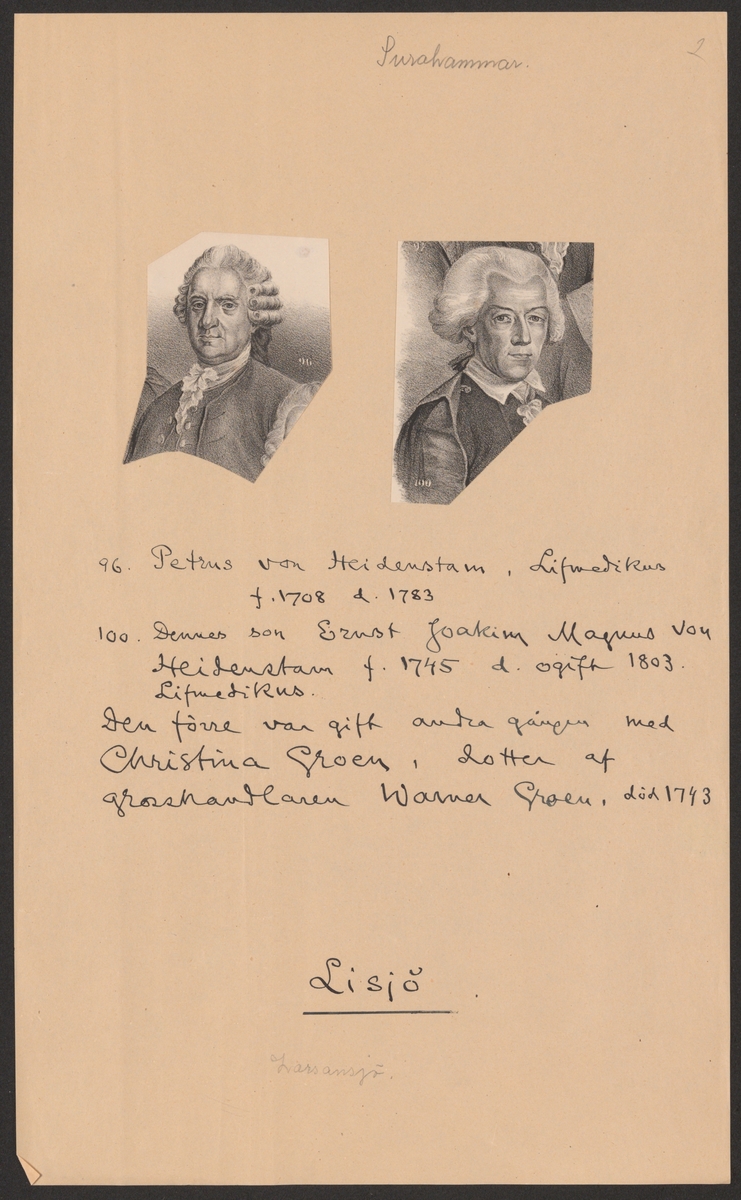 Surahammar.
2
96
100
96. Petrus von Heidenstam, Lifmedikus
f. 1708 d. 1783
100. Dennes son Ernst Joakim Magnus von
Heidenstam f. 1745 d. ogift 1803.
Lifmedikus.
Den förre var gift andra gången med
Christina Groen, dotter af
grosshandlaren Warner Groen, död 1743
Lisjö